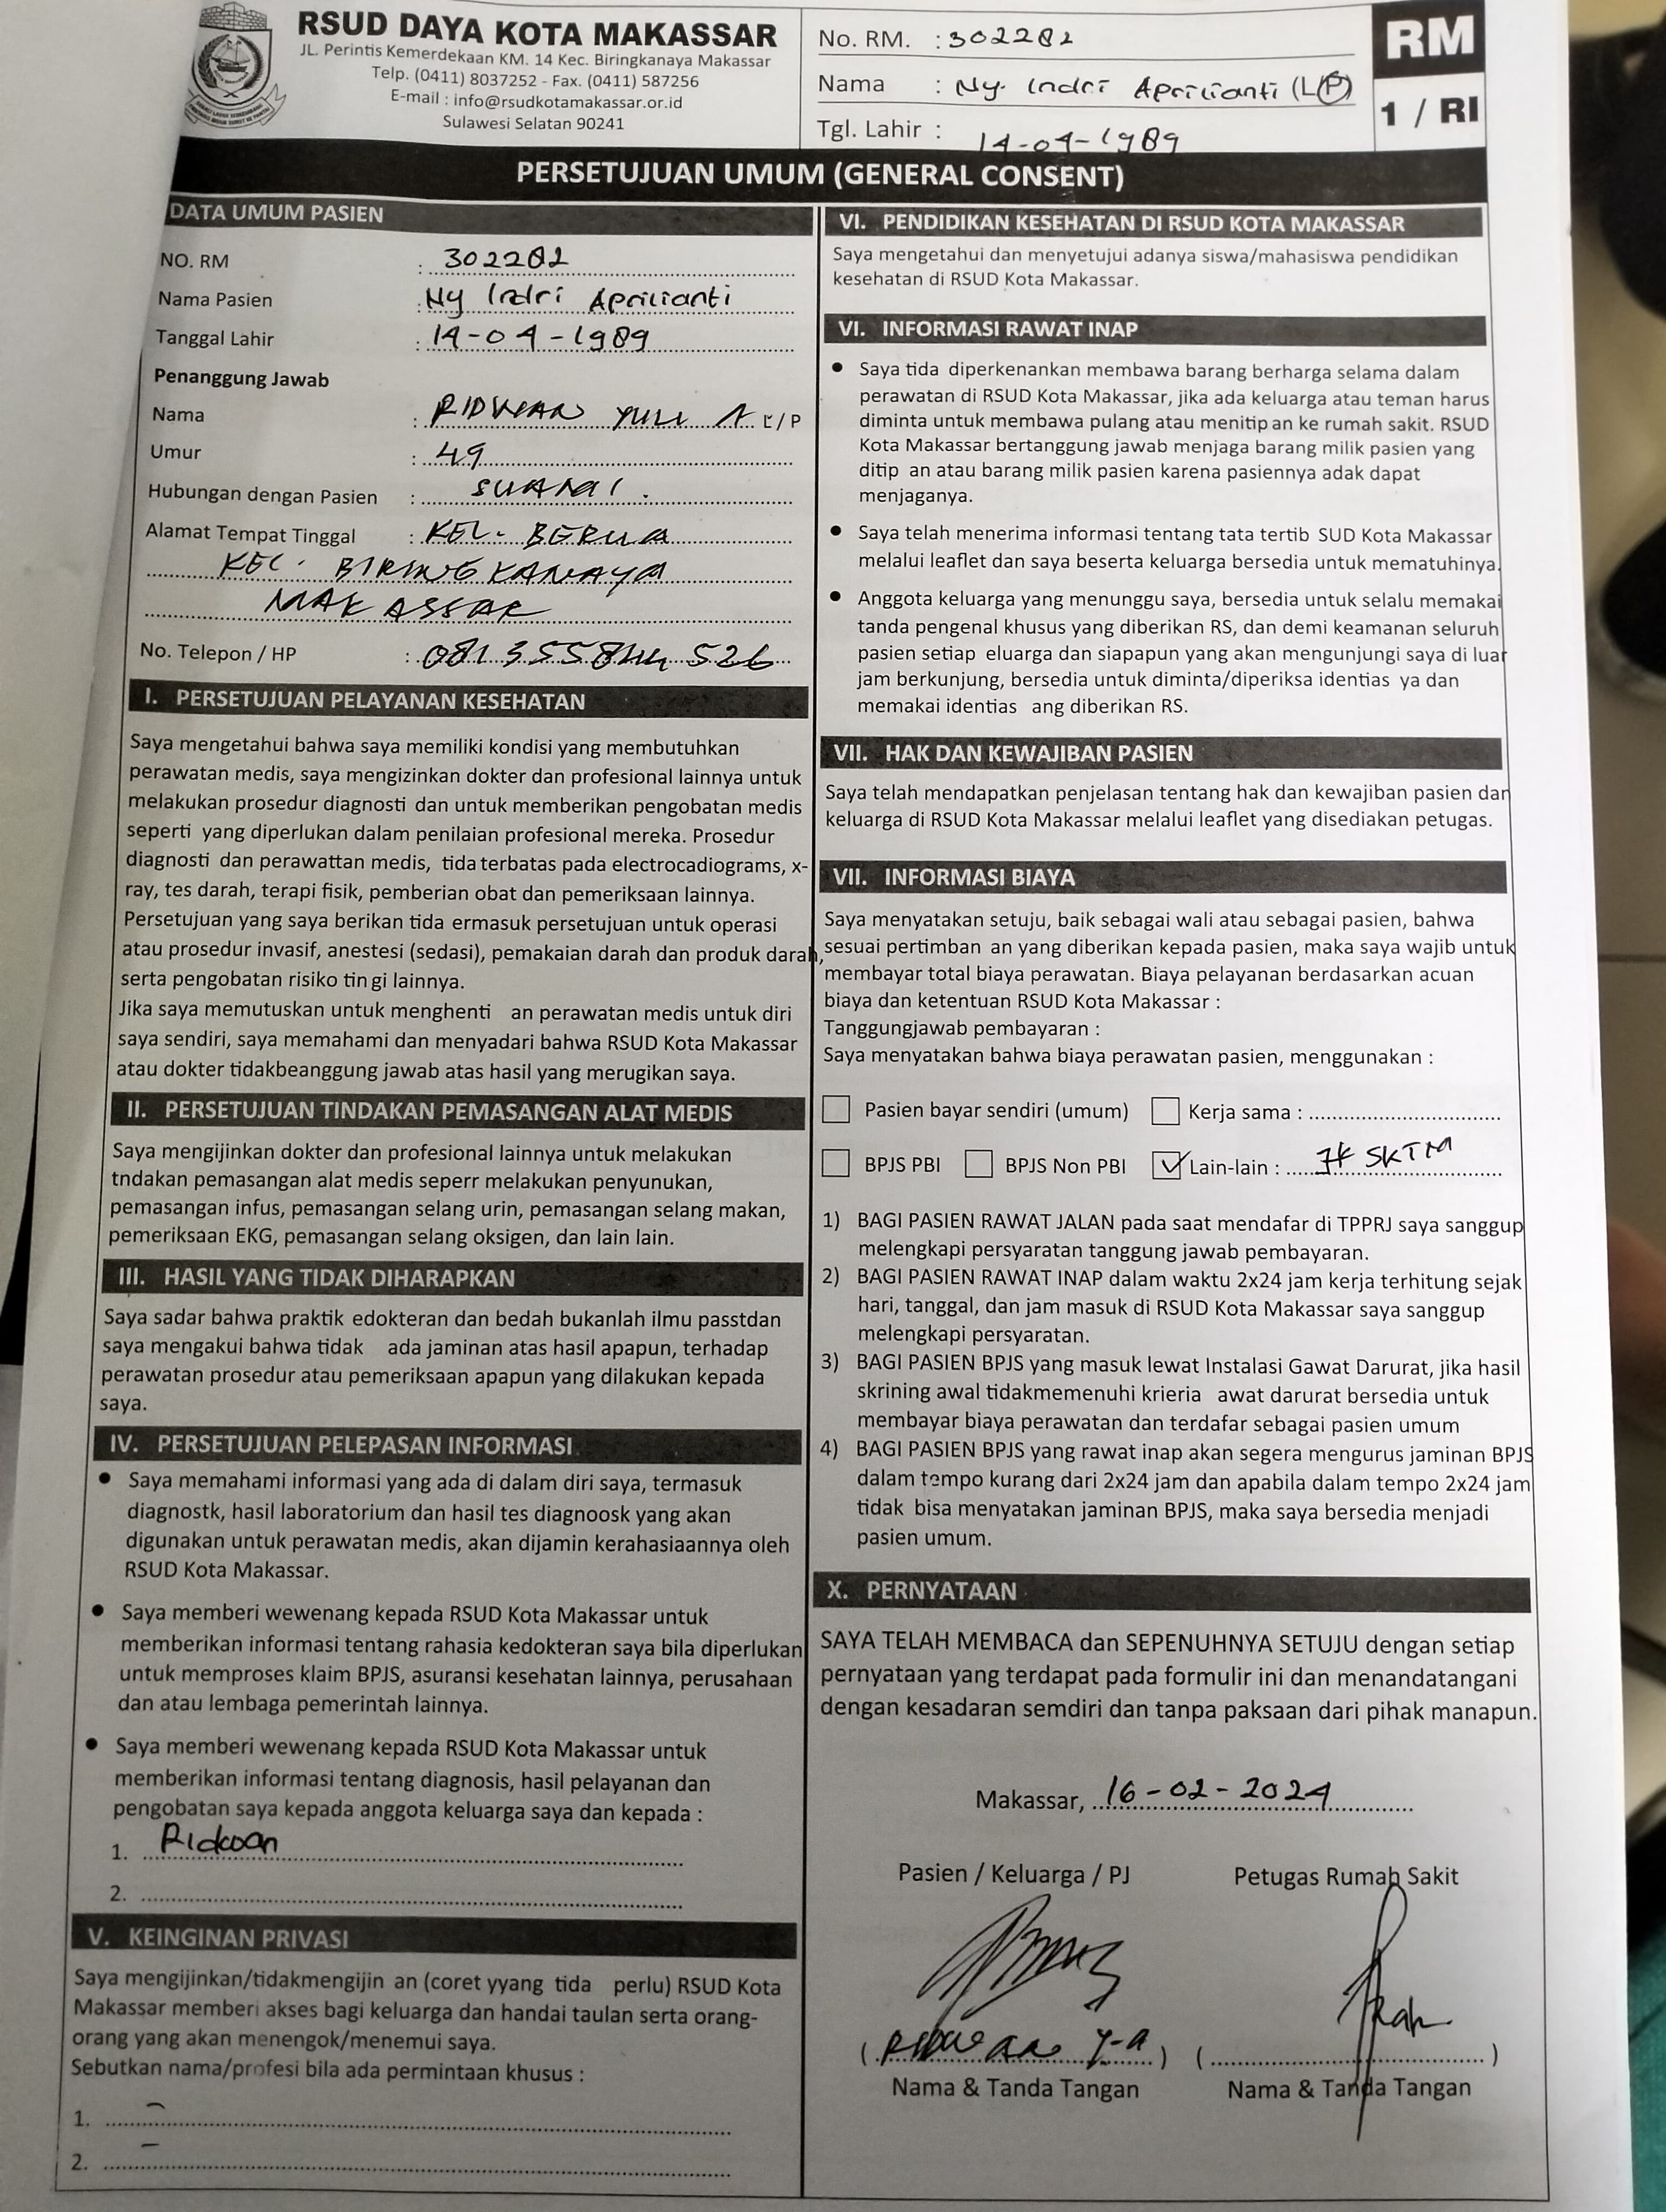 RSUD DAYA KOTA MAKASSAR
JL. Perintis Kemerdekaan KM. 14 Kec. Biringkanaya Makassar
Telp. (0411) 8037252 - Fax. (0411) 587256
E-mail : info@rsudkotamakassar.or.id
Sulawesi Selatan 90241
No. RM. : 302282
Nama : Ny. Indri Aprilianti (L/P)
Tgl. Lahir : 14-04-1989
RM
1 / RI
PERSETUJUAN UMUM (GENERAL CONSENT)
DATA UMUM PASIEN
NO. RM : 302282
Nama Pasien : Ny Indri Aprilianti
Tanggal Lahir : 14-04-1989
Penanggung Jawab
Nama : RIDWAN L/P
Umur : 49
Hubungan dengan Pasien : SUAMI.
Alamat Tempat Tinggal : KEL. BERUA
KEC. BIRINGKANAYA
MAKASSAR
No. Telepon / HP :
I. PERSETUJUAN PELAYANAN KESEHATAN
Saya mengetahui bahwa saya memiliki kondisi yang membutuhkan
perawatan medis, saya mengizinkan dokter dan profesional lainnya untuk
melakukan prosedur diagnosti dan untuk memberikan pengobatan medis
seperti yang diperlukan dalam penilaian profesional mereka. Prosedur
diagnosti dan perawattan medis, tida terbatas pada electrocadiograms, x-
ray, tes darah, terapi fisik, pemberian obat dan pemeriksaan lainnya.
Persetujuan yang saya berikan tida ermasuk persetujuan untuk operasi
atau prosedur invasif, anestesi (sedasi), pemakaian darah dan produk darah,
serta pengobatan risiko tin gi lainnya.
Jika saya memutuskan untuk menghenti an perawatan medis untuk diri
saya sendiri, saya memahami dan menyadari bahwa RSUD Kota Makassar
atau dokter tidakbeanggung jawab atas hasil yang merugikan saya.
II. PERSETUJUAN TINDAKAN PEMASANGAN ALAT MEDIS
Saya mengijinkan dokter dan profesional lainnya untuk melakukan
tndakan pemasangan alat medis seperr melakukan penyunukan,
pemasangan infus, pemasangan selang urin, pemasangan selang makan,
pemeriksaan EKG, pemasangan selang oksigen, dan lain lain.
III. HASIL YANG TIDAK DIHARAPKAN
Saya sadar bahwa praktik edokteran dan bedah bukanlah ilmu passtdan
saya mengakui bahwa tidak ada jaminan atas hasil apapun, terhadap
perawatan prosedur atau pemeriksaan apapun yang dilakukan kepada
saya.
IV. PERSETUJUAN PELEPASAN INFORMASI
• Saya memahami informasi yang ada di dalam diri saya, termasuk
diagnostk, hasil laboratorium dan hasil tes diagnoosk yang akan
digunakan untuk perawatan medis, akan dijamin kerahasiaannya oleh
RSUD Kota Makassar.
• Saya memberi wewenang kepada RSUD Kota Makassar untuk
memberikan informasi tentang rahasia kedokteran saya bila diperlukan
untuk memproses klaim BPJS, asuransi kesehatan lainnya, perusahaan
dan atau lembaga pemerintah lainnya.
• Saya memberi wewenang kepada RSUD Kota Makassar untuk
memberikan informasi tentang diagnosis, hasil pelayanan dan
pengobatan saya kepada anggota keluarga saya dan kepada :
1. Ridwan
2.
V. KEINGINAN PRIVASI
Saya mengijinkan/tidakmengijin an (coret yyang tida perlu) RSUD Kota
Makassar memberi akses bagi keluarga dan handai taulan serta orang-
orang yang akan menengok/menemui saya.
Sebutkan nama/profesi bila ada permintaan khusus :
1. -
2. -
VI. PENDIDIKAN KESEHATAN DI RSUD KOTA MAKASSAR
Saya mengetahui dan menyetujui adanya siswa/mahasiswa pendidikan
kesehatan di RSUD Kota Makassar.
VI. INFORMASI RAWAT INAP
• Saya tida diperkenankan membawa barang berharga selama dalam
perawatan di RSUD Kota Makassar, jika ada keluarga atau teman harus
diminta untuk membawa pulang atau menitip an ke rumah sakit. RSUD
Kota Makassar bertanggung jawab menjaga barang milik pasien yang
ditip an atau barang milik pasien karena pasiennya adak dapat
menjaganya.
• Saya telah menerima informasi tentang tata tertib SUD Kota Makassar
melalui leaflet dan saya beserta keluarga bersedia untuk mematuhinya.
• Anggota keluarga yang menunggu saya, bersedia untuk selalu memakai
tanda pengenal khusus yang diberikan RS, dan demi keamanan seluruh
pasien setiap eluarga dan siapapun yang akan mengunjungi saya di luar
jam berkunjung, bersedia untuk diminta/diperiksa identias ya dan
memakai identias ang diberikan RS.
VII. HAK DAN KEWAJIBAN PASIEN
Saya telah mendapatkan penjelasan tentang hak dan kewajiban pasien dan
keluarga di RSUD Kota Makassar melalui leaflet yang disediakan petugas.
VII. INFORMASI BIAYA
Saya menyatakan setuju, baik sebagai wali atau sebagai pasien, bahwa
sesuai pertimban an yang diberikan kepada pasien, maka saya wajib untuk
membayar total biaya perawatan. Biaya pelayanan berdasarkan acuan
biaya dan ketentuan RSUD Kota Makassar :
Tanggungjawab pembayaran :
Saya menyatakan bahwa biaya perawatan pasien, menggunakan :
Pasien bayar sendiri (umum) Kerja sama :
BPJS PBI BPJS Non PBI ✓ Lain-lain : SKTM
1) BAGI PASIEN RAWAT JALAN pada saat mendafar di TPPRJ saya sanggup
melengkapi persyaratan tanggung jawab pembayaran.
2) BAGI PASIEN RAWAT INAP dalam waktu 2x24 jam kerja terhitung sejak
hari, tanggal, dan jam masuk di RSUD Kota Makassar saya sanggup
melengkapi persyaratan.
3) BAGI PASIEN BPJS yang masuk lewat Instalasi Gawat Darurat, jika hasil
skrining awal tidakmemenuhi krieria awat darurat bersedia untuk
membayar biaya perawatan dan terdafar sebagai pasien umum
4) BAGI PASIEN BPJS yang rawat inap akan segera mengurus jaminan BPJS
dalam tempo kurang dari 2x24 jam dan apabila dalam tempo 2x24 jam
tidak bisa menyatakan jaminan BPJS, maka saya bersedia menjadi
pasien umum.
X. PERNYATAAN
SAYA TELAH MEMBACA dan SEPENUHNYA SETUJU dengan setiap
pernyataan yang terdapat pada formulir ini dan menandatangani
dengan kesadaran semdiri dan tanpa paksaan dari pihak manapun.
Makassar, 16-02-2024
Pasien / Keluarga / PJ Petugas Rumah Sakit
(Ridwan Y-A) ( )
Nama & Tanda Tangan Nama & Tanda Tangan